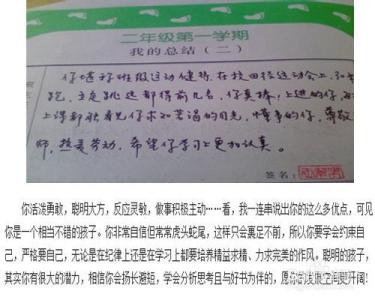 二年级第一学期
我的总结（二）
你堪称班级运动健将，在校田径运动会上，
跑、立定跳远都得前几名，你真棒！上进的你，每
上课都能看见你求知若渴的目光，懂事的你，尊敬
师，热爱劳动，希望你学习上更加认真。
签名：
你活泼勇敢，聪明大方，反应灵敏，做事积极主动……看，我一连串说出你的这么多优点，可见
你是一个相当不错的孩子。你非常自信但常常虎头蛇尾，这样只会裹足不前，所以你要学会约束自
己，严格要自己，无论是在纪律上还是在学习上都要培养精益求精、力求完美的作风，聪明的孩子，
其实你有很大的潜力，相信你会扬长避短，学会分析思考且与好书为伴的，愿你的发展空间更开阔！